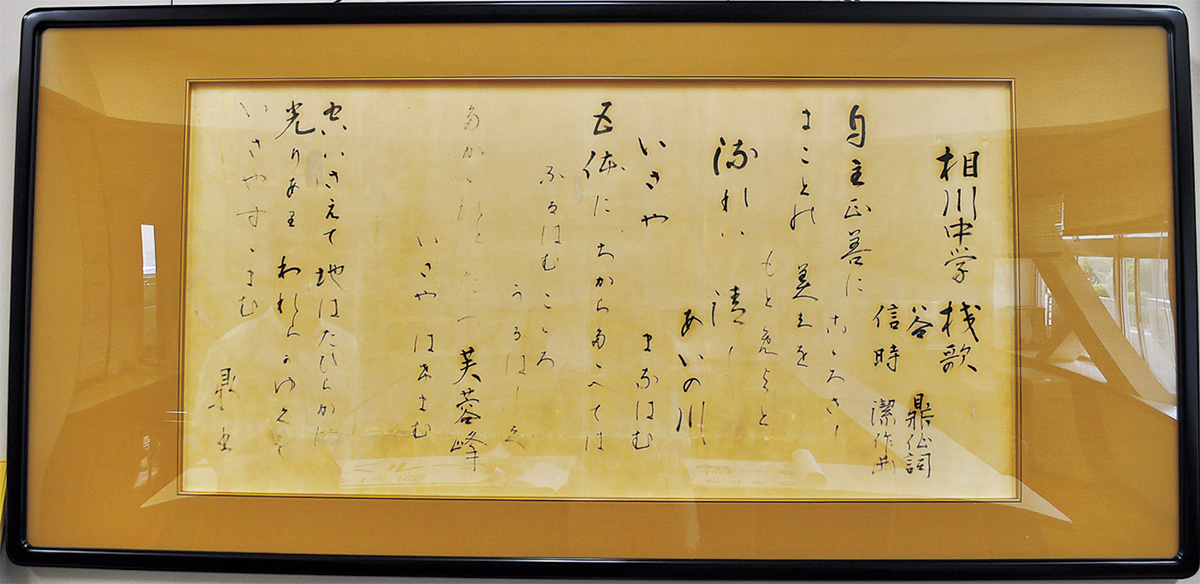 相川中学 校歌
谷 鼎作詞
信時 潔作曲
自主正善に こゝろさし
まことの 美玉を
もと免よと
流れハ 清し
あいの川
いさや まなはむ
五体に ちからたゝへては
ふるはむ こゝろ
うるはしく
たかゝれと たつ 芙蓉峰
いさや はけまむ
空ハさえて 地はたひらかに
光りあり われらかゆくて
いさやすゝまむ
鼎書